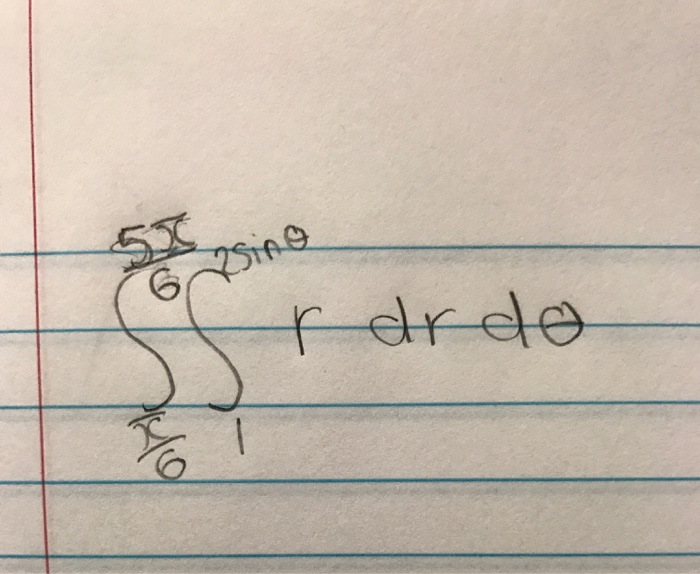 ∫_{π/6}^{5π/6} ∫_{1}^{2sinθ} r dr dθ